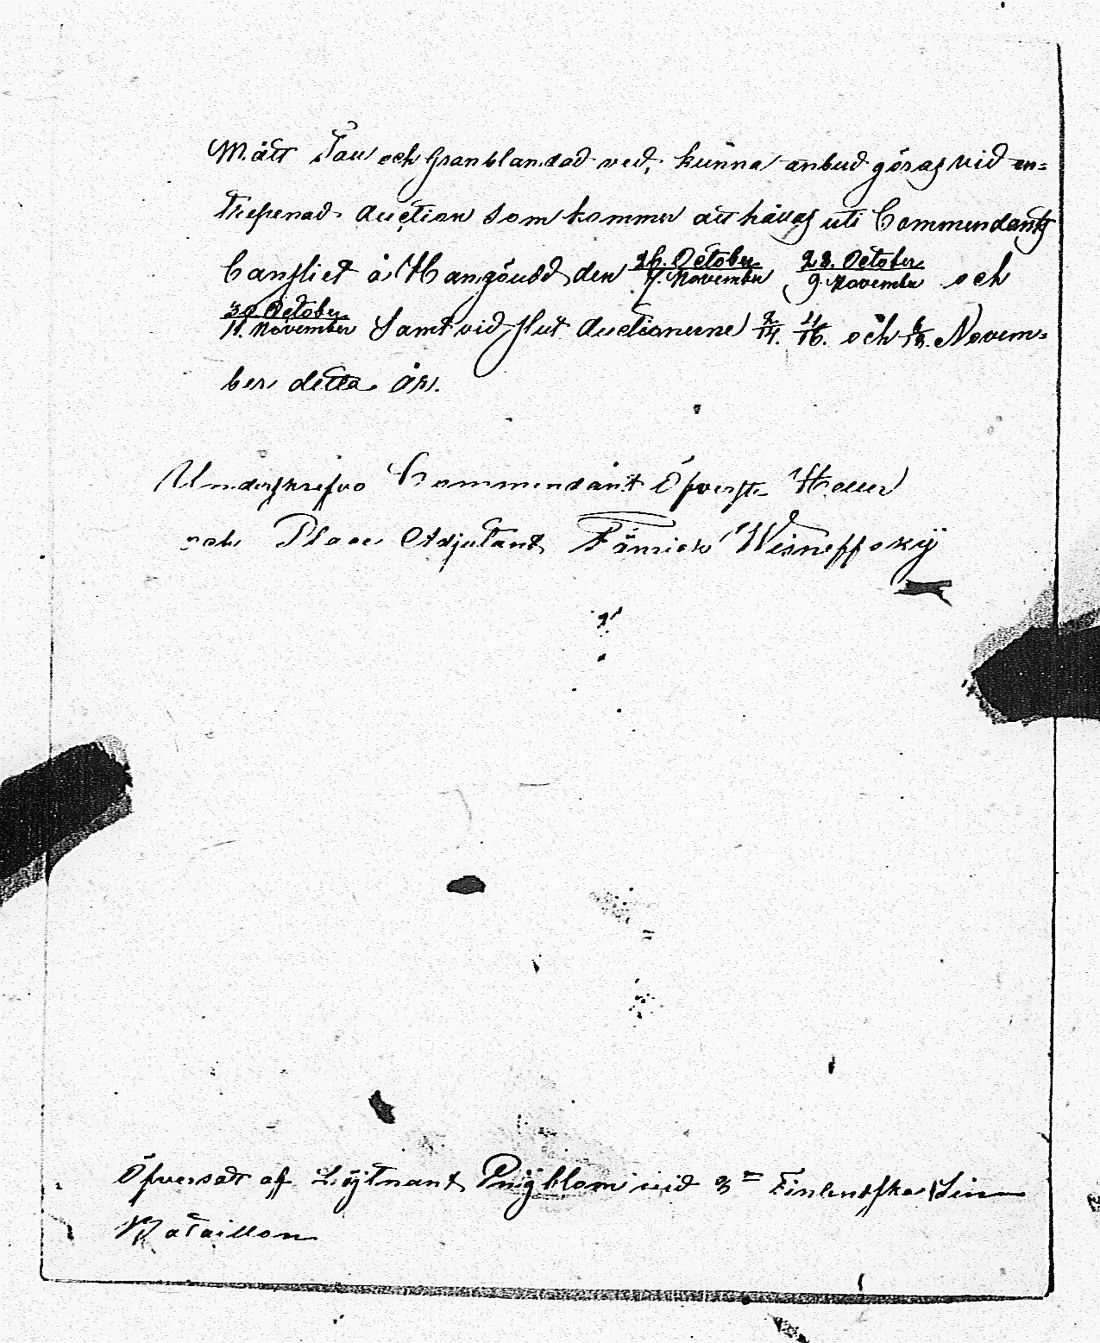 Mått Tau och Granblandad ved, kunna anbud göras vid en=
trepenad Auction som kommer att hållas uti Commendants
Cansliet å Hangöudd den 26. October/7. November, 28. October/9. November och
30 October/11. November samt vid slut Auctionerne 2/14. 4/16. och 6/18. Novem=
ber detta År.
Underskrifvo Commendant Öfverste
och Place Adjutant Fänrick Wisneffskÿ
Öfversatt af Löjtnant vid 3= Finlendska Lin
Bataillon